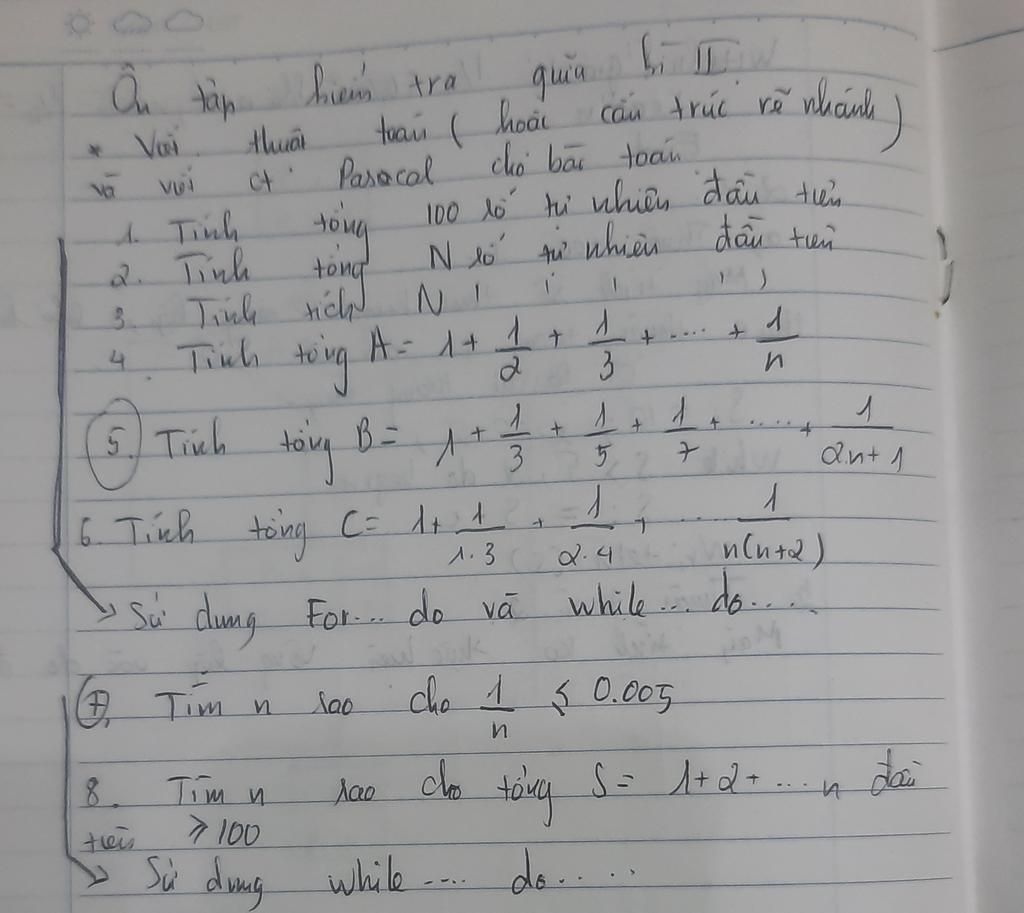 Ôn tập kiểm tra giữa kì II
* Viết thuật toán (hoặc cấu trúc rẽ nhánh)
và viết ct Pasacal cho bài toán
1. Tính tổng 100 số tự nhiên đầu tiên
2. Tính tổng N số tự nhiên đầu tiên
3. Tính tích N ' ' ' ' '
4. Tính tổng A = 1 + 1/2 + 1/3 + .... + 1/n
5. Tính tổng B = 1 + 1/3 + 1/5 + 1/7 + ..... + 1/(2n+1)
6. Tính tổng C = 1 + 1/(1.3) + 1/(2.4) + ... 1/(n(n+2))
→ Sử dụng For... do và while... do....
7. Tìm n sao cho 1/n ≤ 0.005
8. Tìm n sao cho tổng S = 1+2+ ... n đầu
tiên ≥ 100
→ Sử dụng while .... do .....